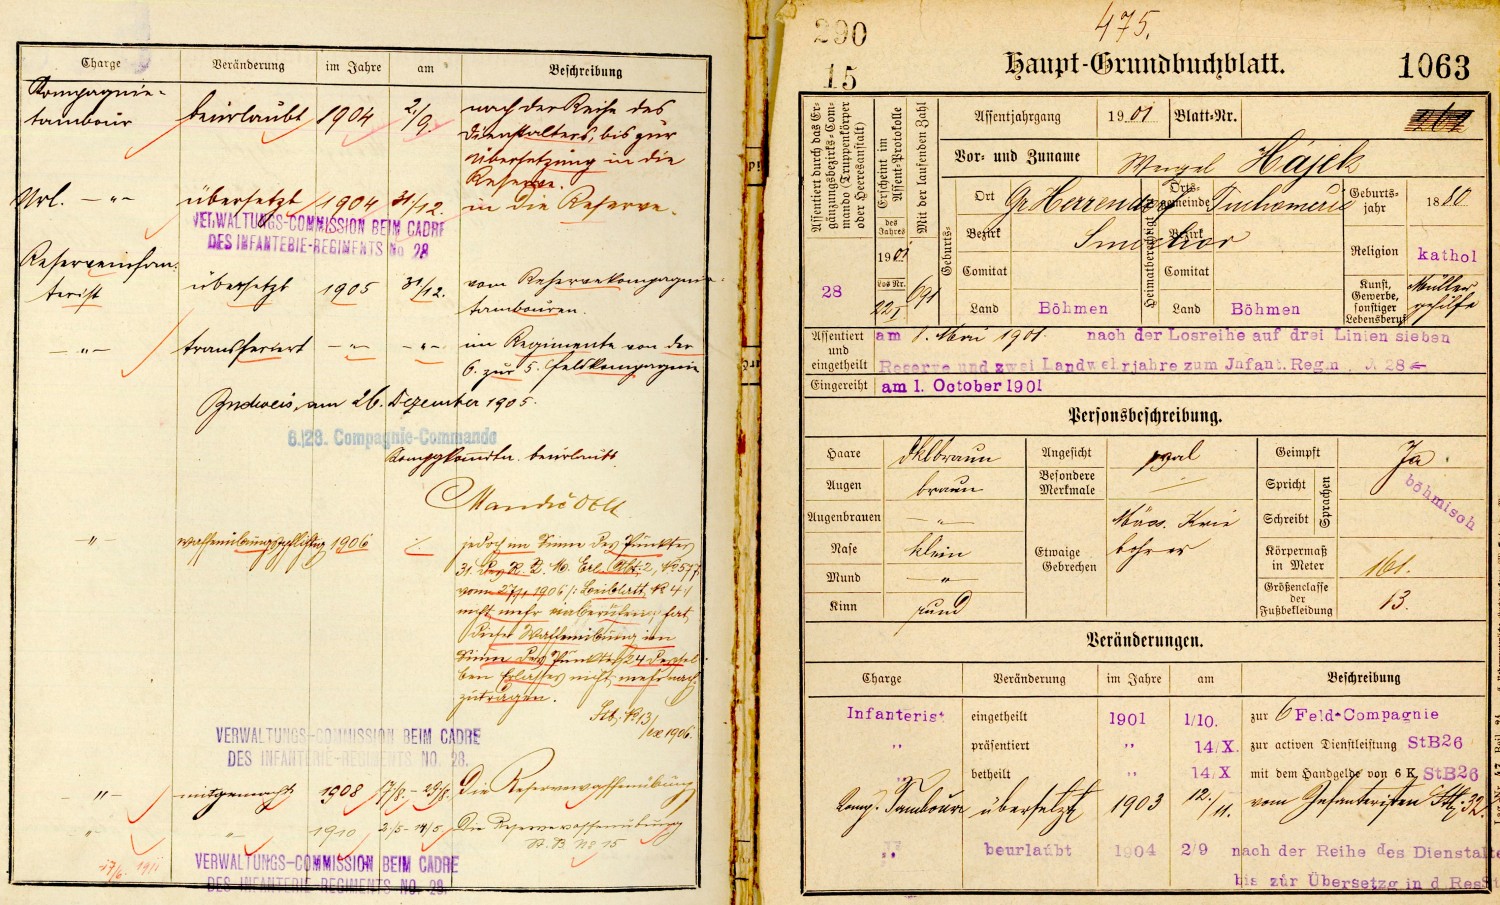 Charge Veränderung im Jahre am Beschreibung
Kompagnie-
tambour beurlaubt 1904 2./9. nach der Reihe des
Dienstalters, bis zur
Übersetzung in die
Reserve.
Url. — „ — übersetzt 1904 31/12. in die Reserve.
VERWALTUNGS-COMMISSION BEIM CADRE
DES INFANTERIE-REGIMENTS No 28
Reserveinfan-
terist übersetzt 1905 31/12. vom Reservekompagnie-
tambouren.
— „ — transferiert — „ — — „ — im Regimente von der
6. zur 5. Feldkompagnie
Budweis, am 26. Dezember 1905.
6./28. Compagnie-Commando
beurlaubt.
— „ — waffenübungspflichtig 1906 jedoch im Sinne des Punktes
31. des R. K. M. Erl. Abt. 2, № 577
vom 1906 /: Beiblatt № 4 :/
nicht mehr einberufen; hat
diese Waffenübung im
Sinne des Punktes 24 dessel-
ben Erlasses nicht mehr nach-
zutragen.
1906.
VERWALTUNGS-COMMISSION BEIM CADRE
DES INFANTERIE-REGIMENTS NO. 28.
— „ — mitgemacht 1908 17/8.-29/8. Die Reservewaffenübung
„ „ 1910 2/5-14/5. Die Reservewaffenübung
St. B № 15
VERWALTUNGS-COMMISSION BEIM CADRE
DES INFANTERIE-REGIMENTS NO. 28.
290
475.
15
Haupt-Grundbuchblatt.
1063
Assentiert durch das Er-
gänzungsbezirks-Com-
mando (Truppenkörper
oder Heeresanstalt)
28
Erscheint im
Assent-Protokolle
des
Jahres
1901
Los Nr.
Mit der laufenden Zahl
691
Assentjahrgang 1901 Blatt-Nr.
Vor- und Zuname Wenzel Hájek
Geburts-
Ort Gr Herrendorf
Bezirk
Comitat
Land Böhmen
Heimatberechtigt
Orts-
gemeinde Tuchomeric
Bezirk
Smichov
Comitat
Land Böhmen
Geburts-
jahr 1880
Religion kathol
Kunst,
Gewerbe,
sonstiger
Lebensberuf
Müller
gehilfe
Assentiert
und
eingetheilt
am 1. Mai 1901. nach der Losreihe auf drei Linien sieben
Reserve und zwei Landwehrjahre zum Jnfant. Reg. № 28
Eingereiht am 1. October 1901
Personsbeschreibung.
Haare dklbraun
Augen braun
Augenbrauen — „ —
Nase klein
Mund — „ —
Kinn rund
Angesicht oval
Besondere
Merkmale
Etwaige
Gebrechen
Geimpft Ja
Spricht
Schreibt
Sprachen
böhmisch
Körpermaß
in Meter 161.
Größenclasse
der
Fußbekleidung 13.
Veränderungen.
Charge Veränderung im Jahre am Beschreibung
Infanterist eingetheilt 1901 1/10. zur 6 Feld-Compagnie
„ präsentiert „ 14/X. zur activen Dienstleistung StB26
„ betheilt „ 14/X mit dem Handgelde von 6 K StB26
Komp. Tambour übersetzt 1903 12./11. vom Infanteristen Stb. 32.
„ beurlaubt 1904 2/9 nach der Reihe des Dienstalte
bis zur Übersetzg in d Res